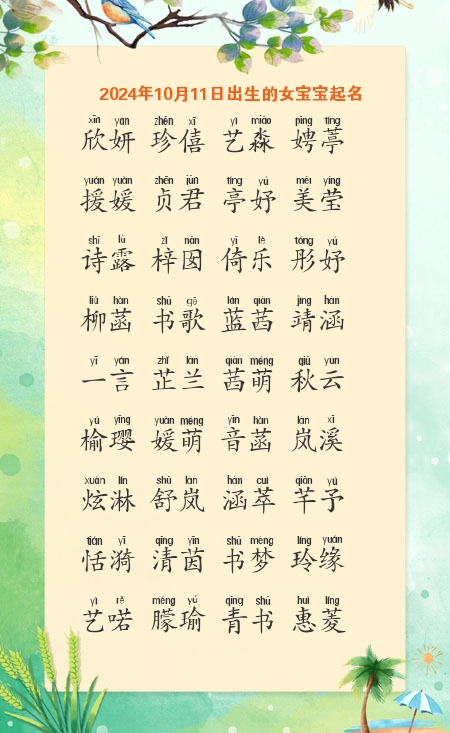 2024年10月11日出生的女宝宝起名
xīn yán zhēn xī yì miǎo pīng tíng
欣妍 珍僖 艺淼 娉葶
yuán yuàn zhēn jūn tíng yú měi yíng
援媛 贞君 亭妤 美莹
shī lù zǐ nān yǐ lè tóng yú
诗露 梓囡 倚乐 彤妤
liǔ hàn shū gē lán qiàn jìng hán
柳菡 书歌 蓝茜 靖涵
yī yán zhǐ lán qiàn méng qiū yún
一言 芷兰 茜萌 秋云
yú yīng yuàn méng yīn hàn lán xī
榆璎 媛萌 音菡 岚溪
xuàn lín shū lán hán cuì qiān yǔ
炫淋 舒岚 涵萃 芊予
tián yī qīng yīn shū mèng líng yuán
恬漪 清茵 书梦 玲缘
yì rě méng yú qīng shū huì líng
艺喏 朦瑜 青书 惠菱